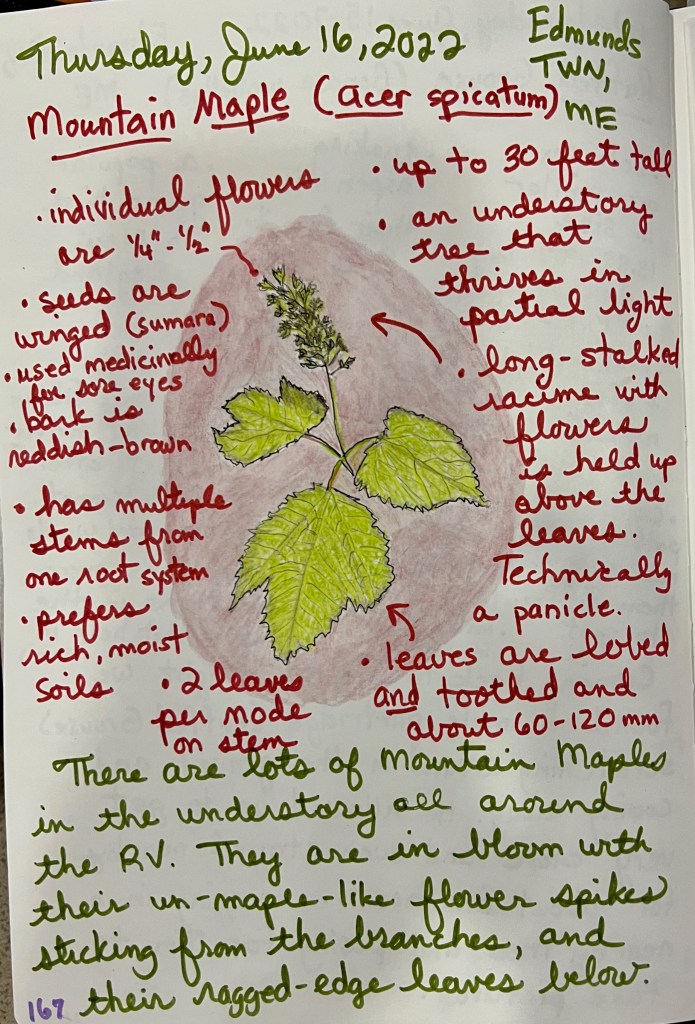 Thursday, June 16, 2022
Edmunds
TWN,
ME
Mountain Maple (acer spicatum)
• individual flowers
are 1/4"-1/2"
• seeds are
winged (sumara)
• used medicinally
for sore eyes
• bark is
reddish-brown
• has multiple
stems from
one root system
• prefers
rich, moist
soils
• 2 leaves
per node
on stem
• up to 30 feet tall
• an understory
tree that
thrives in
partial light
• long-stalked
racime with
flowers
is held up
above the
leaves.
Technically
a panicle.
• leaves are lobed
and toothed and
about 60-120 mm
There are lots of Mountain Maples
in the understory all around
the RV. They are in bloom with
their un-maple-like flower spikes
sticking from the branches, and
their ragged-edge leaves below.
167